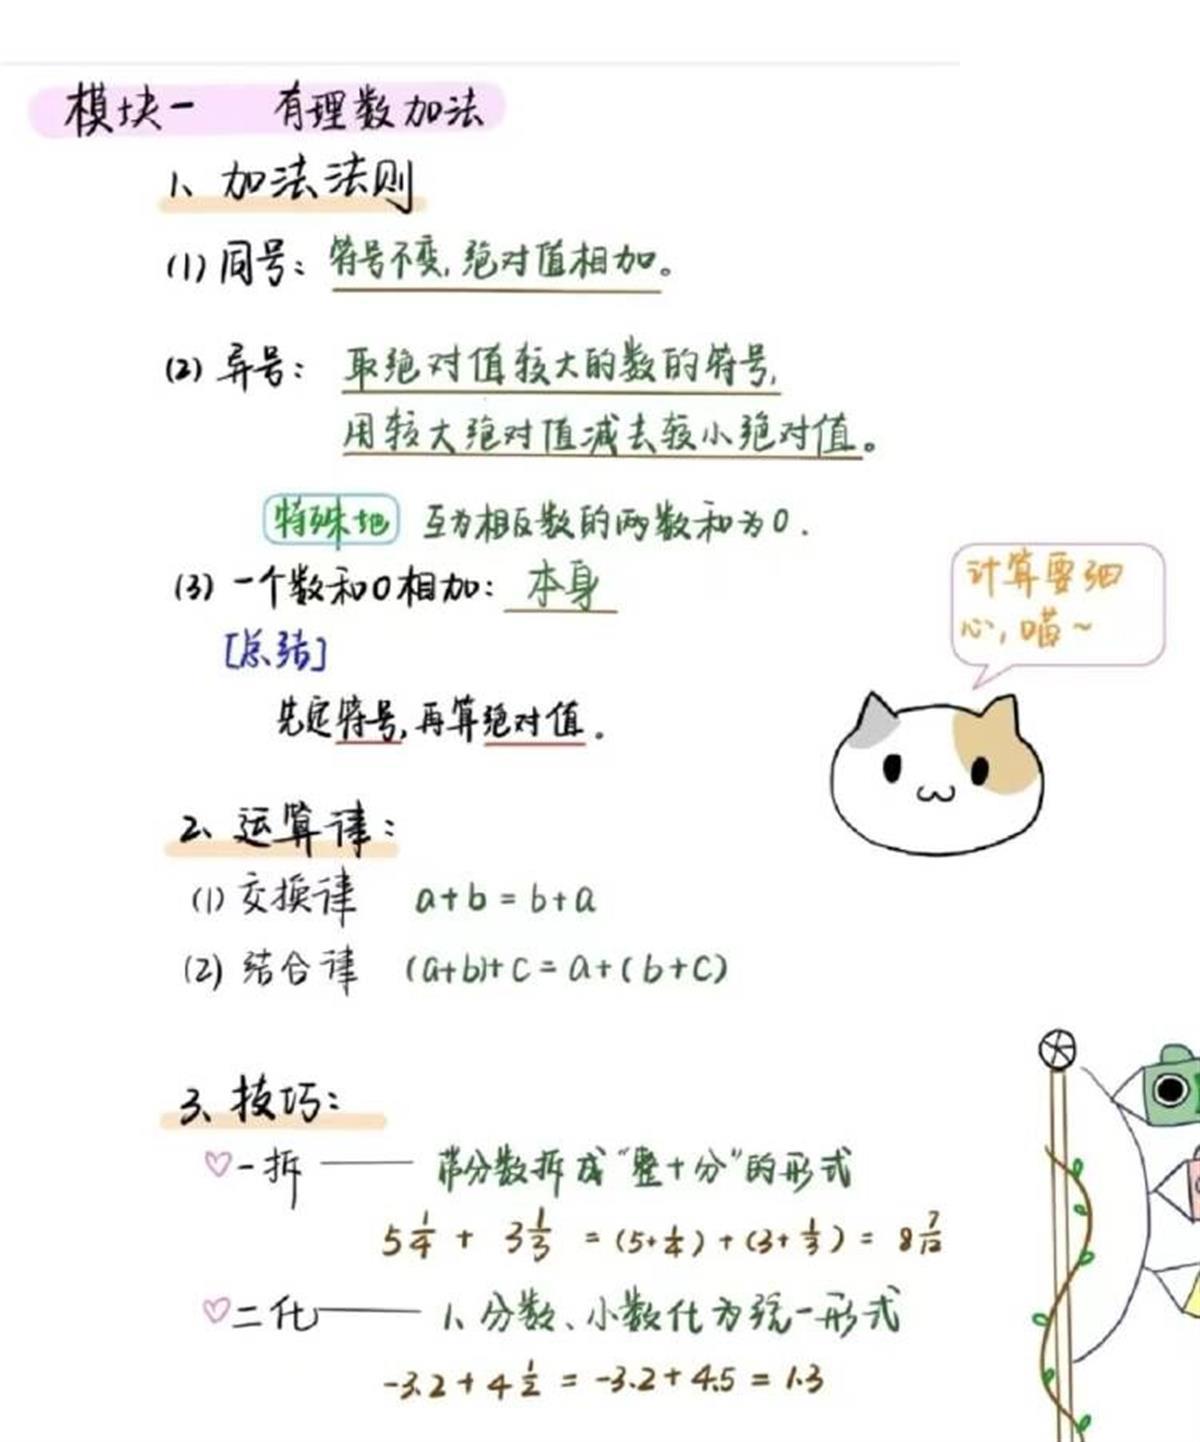 模块一 有理数加法
1、加法法则
(1) 同号：符号不变，绝对值相加。
(2) 异号：取绝对值较大的数的符号，
用较大绝对值减去较小绝对值。
特殊地 互为相反数的两数和为0.
(3) 一个数和0相加：本身
[总结]
先定符号，再算绝对值。
计算要细
心，喵~
2、运算律：
(1) 交换律 a+b=b+a
(2) 结合律 (a+b)+c=a+(b+c)
3、技巧：
♡一拆——带分数拆成“整+分”的形式
5 1/4 + 3 1/3 = (5+1/4)+(3+1/3) = 8 7/12
♡二化——1、分数、小数化为统一形式
-3.2+4 1/2 = -3.2+4.5 = 1.3